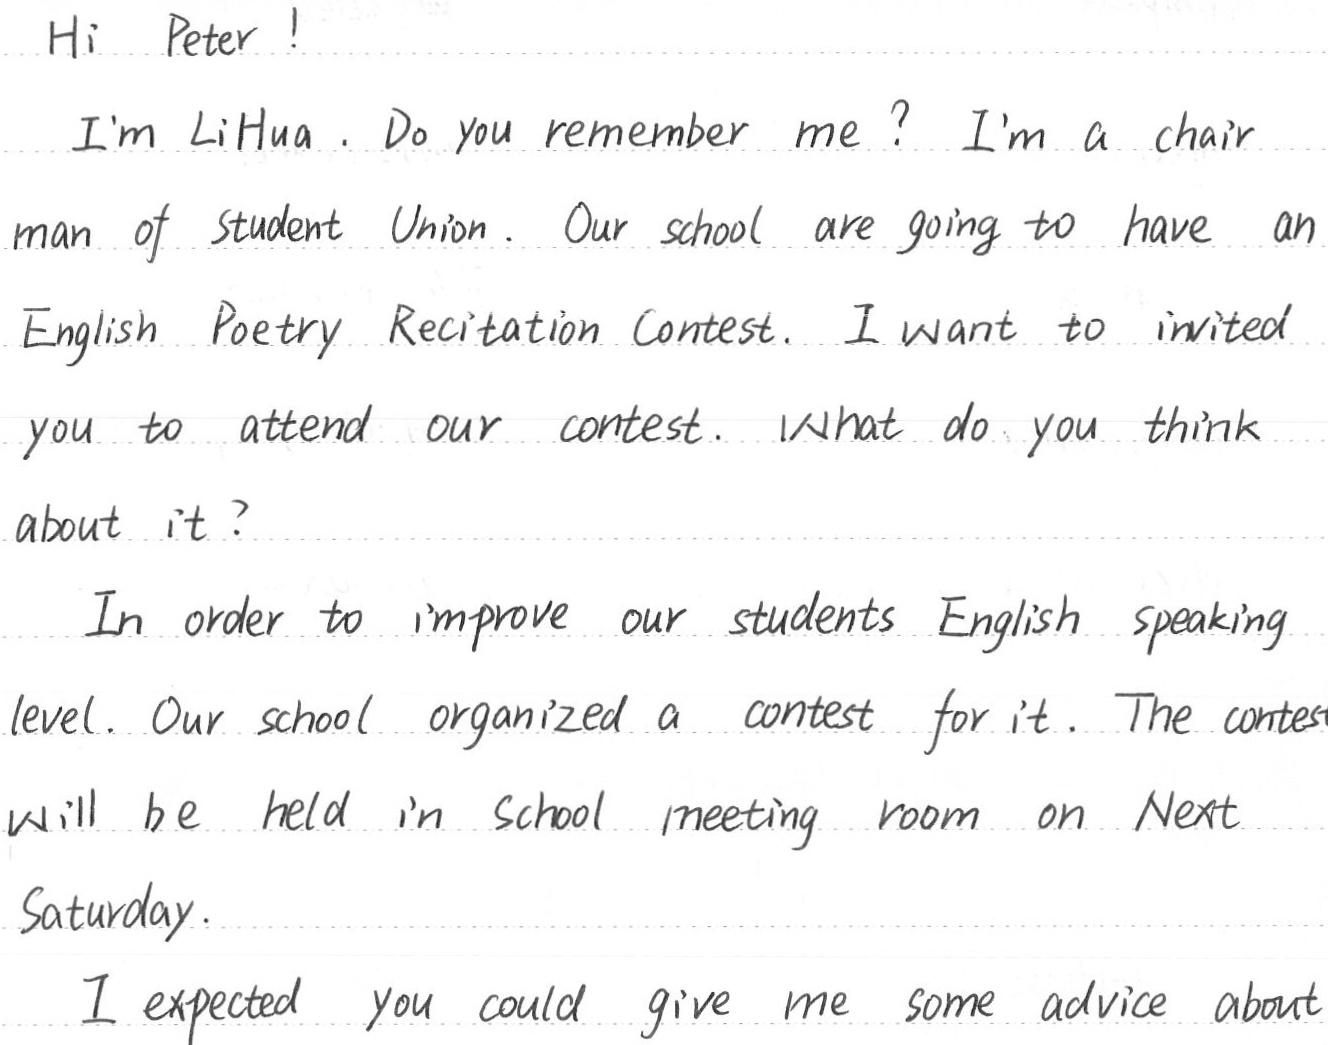 Hi Peter !
I'm LiHua . Do you remember me ? I'm a chair
man of student Union . Our school are going to have an
English Poetry Recitation Contest . I want to invited
you to attend our contest . What do you think
about it ?
In order to improve our students English speaking
level . Our school organized a contest for it . The contest
will be held in school meeting room on Next
Saturday .
I expected you could give me some advice about